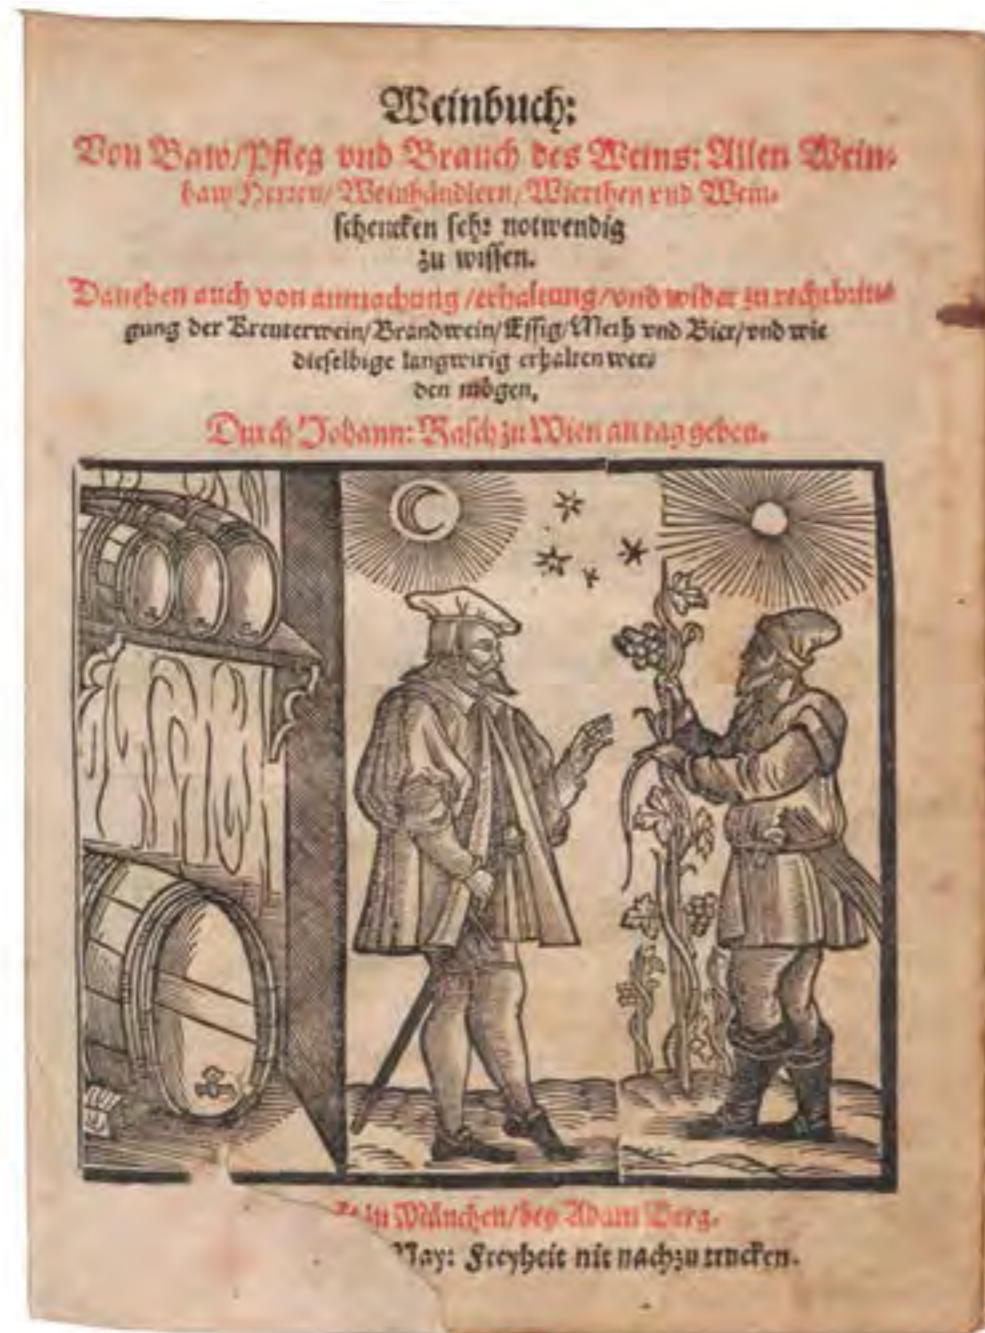 Weinbuch:
Von Baw/Pfleg vnd Brauch des Weins: Allen Wein-
baw Herren/ Weinhändlern/ Wierthen vnd Wein-
schencken sehr notwendig
zu wissen.
Daneben auch von anmachung/erhaltung/vnd wider zu rechtbrin-
gung der Kreuterwein/Brandwein/Essig/Meth vnd Bier/vnd wie
dieselbige langwirig erhalten wer-
den mögen.
Durch Johann: Rasch zu Wien an tag geben.
zu München/bey Adam Berg.
May: Freyheit nit nachzutrucken.